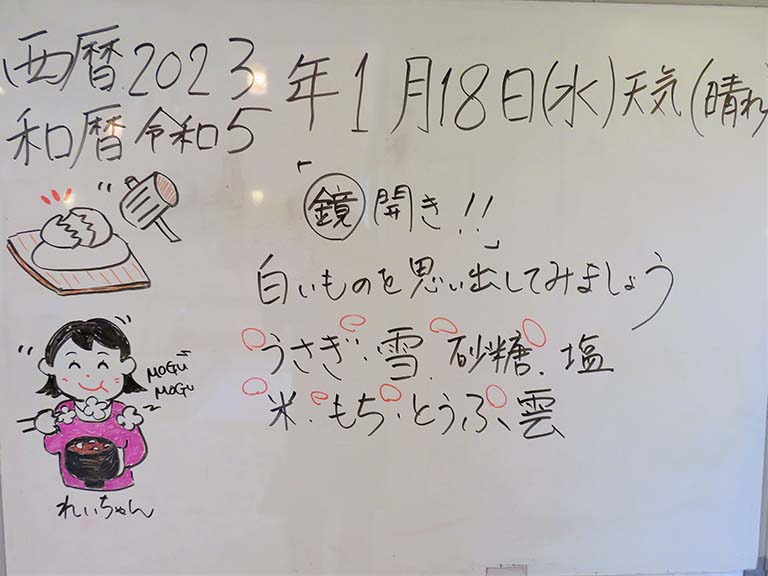 西暦2023年1月18日(水)天気(晴れ)
和暦令和5
「鏡開き!!」
白いものを思い出してみましょう
うさぎ・雪・砂糖・塩
米・もち・とうふ・雲
MOGU
MOGU
れいちゃん